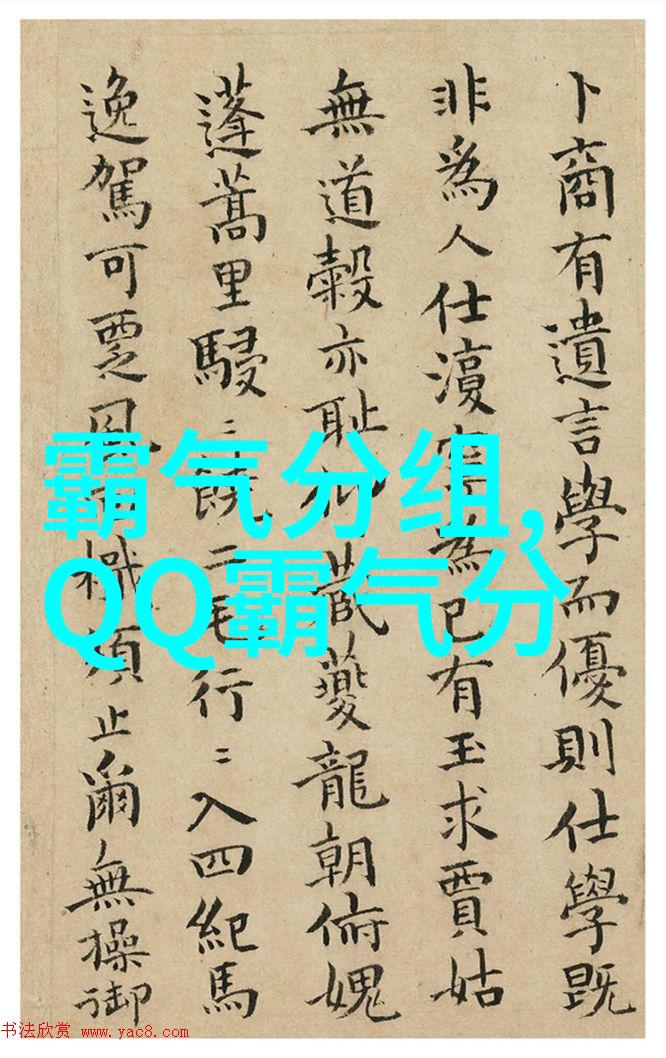 卜商有遺言學而優則仕學既
非爲人仕爲已有玉求賈姑
無道穀亦耻夔龍朝俯媿
蓬蒿里駸二毛行〻入四紀馬
逸駕可覂須止爾無操御
霸气分组,
QQ霸气分
书法欣赏 www.yac8.com